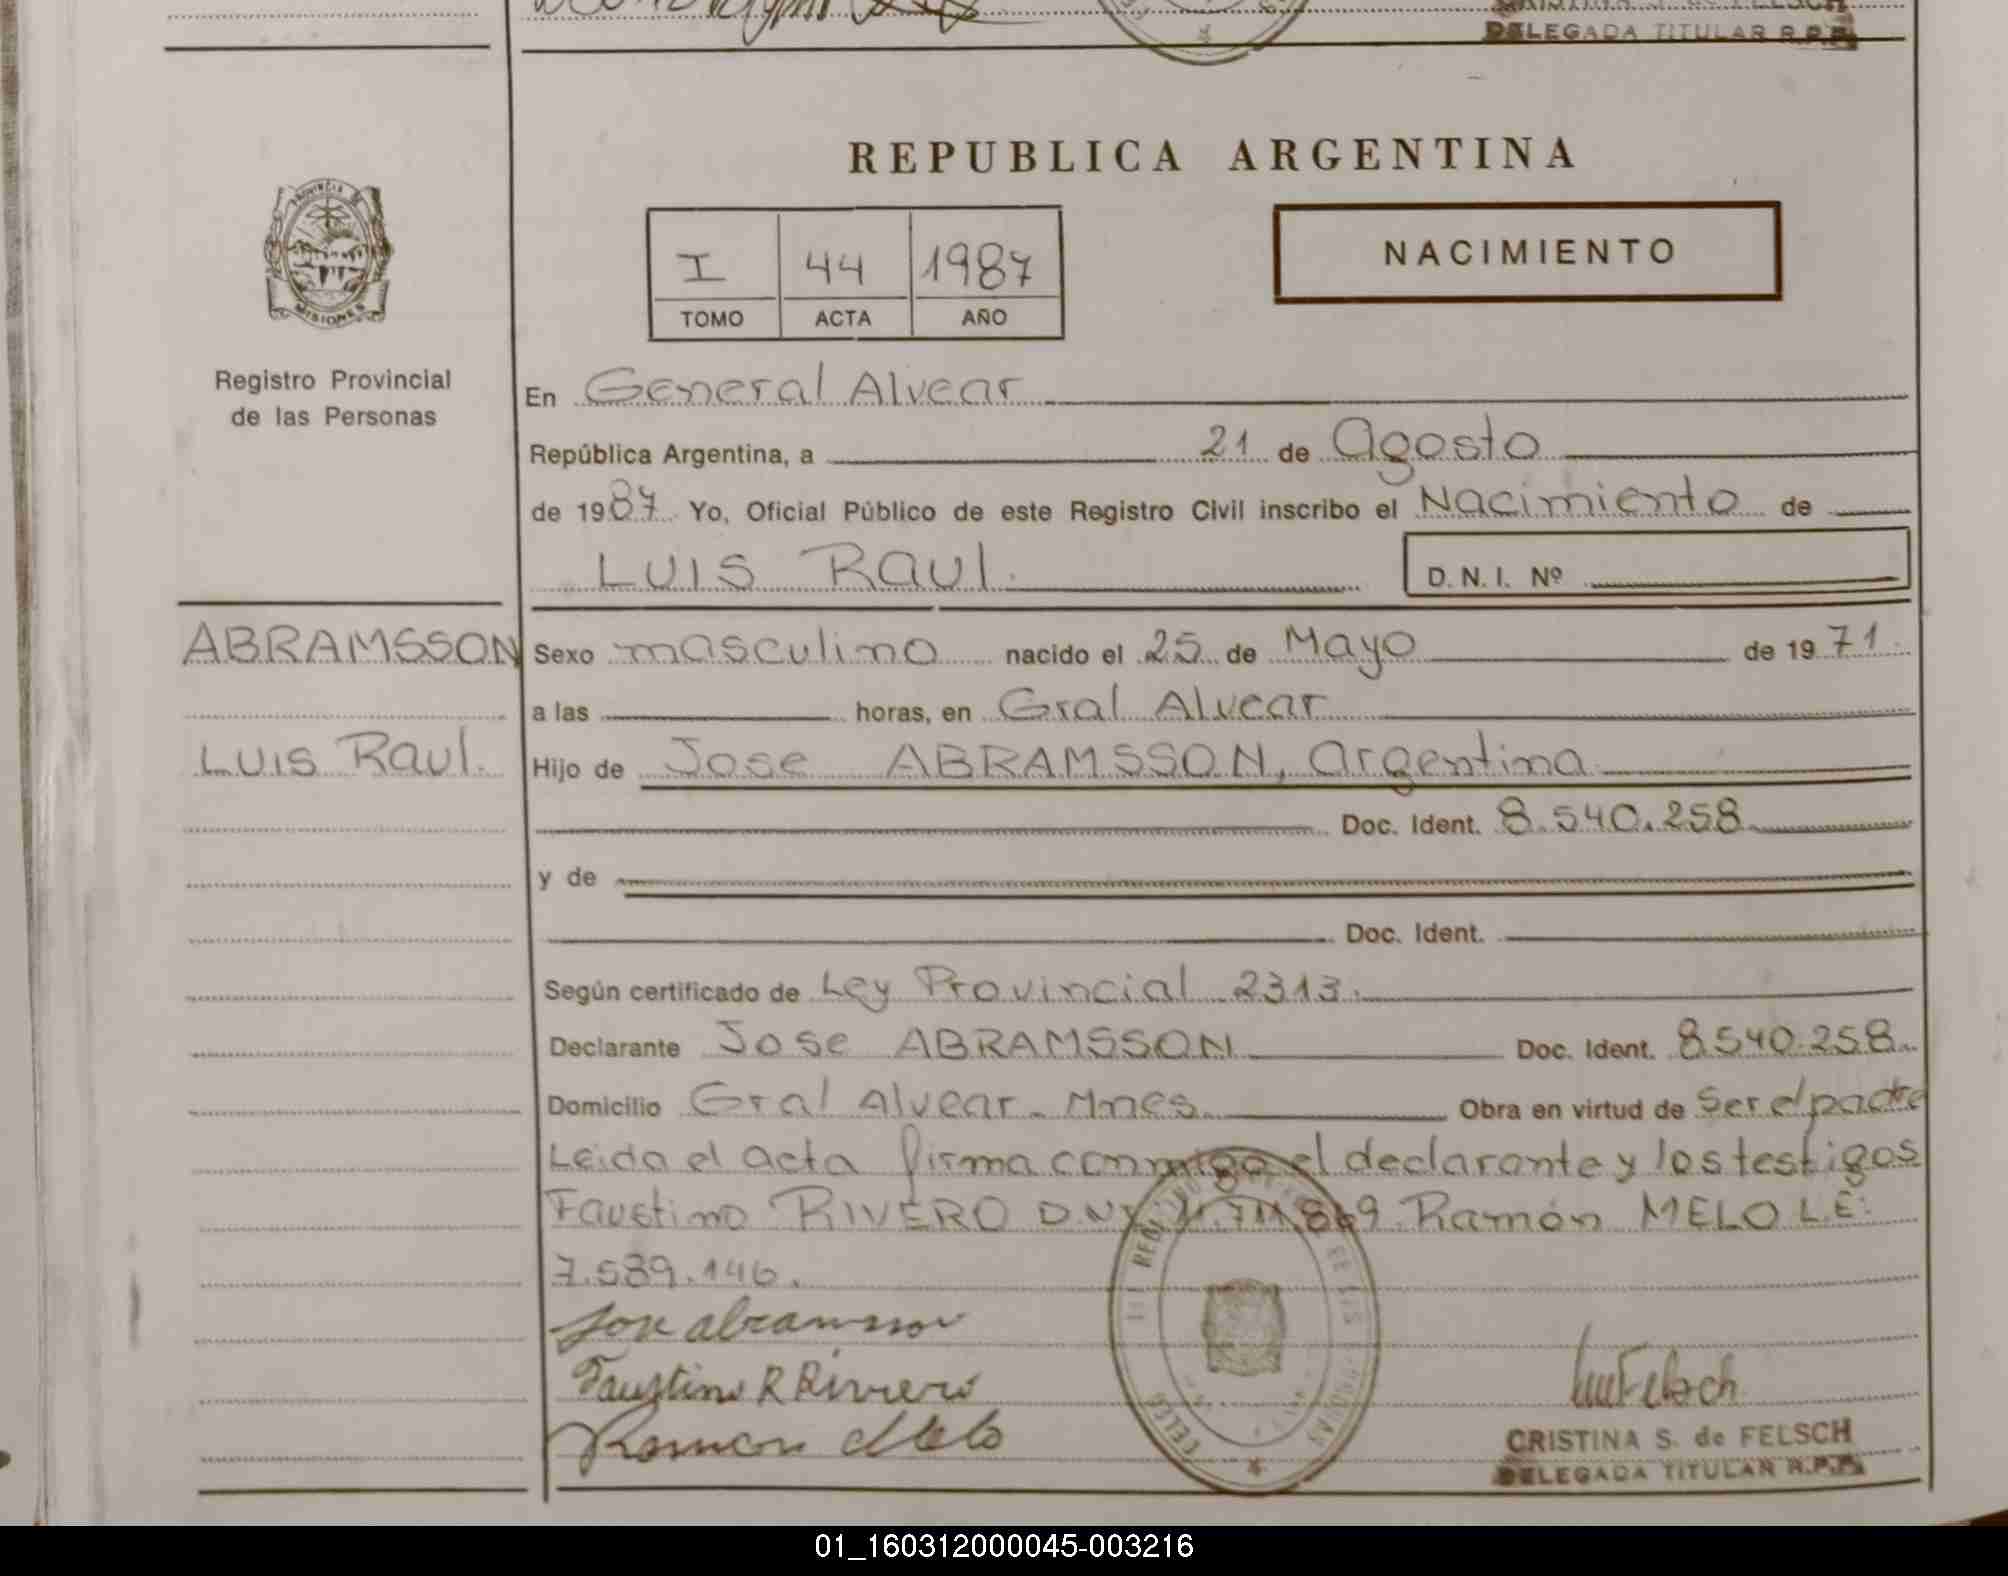 DELEGADA TITULAR R.P.P.
REPUBLICA ARGENTINA
PROVINCIA DE
MISIONES
I 44 1987
TOMO ACTA AÑO
NACIMIENTO
Registro Provincial
de las Personas
En General Alvear
República Argentina, a 21 de Agosto
de 1987 Yo, Oficial Público de este Registro Civil inscribo el Nacimiento de
LUIS RAUL.
D. N. I. Nº
ABRAMSSON
LUIS RAUL.
Sexo masculino nacido el 25 de Mayo de 1971.
a las horas, en Gral Alvear
Hijo de Jose ABRAMSSON, Argentina
Doc. Ident. 8.540.258
y de
Doc. Ident.
Según certificado de Ley Provincial 2313.
Declarante Jose ABRAMSSON Doc. Ident. 8.540.258
Domicilio Gral Alvear - Mnes Obra en virtud de Ser el padre
Leida el acta firma conmigo el declarante y los testigos
Faustino RIVERO D.N.I. 869 Ramón MELO L.E:
7.589.146.
Jose abramsson
Faustino R Rivero
Ramon Melo
Felsch
CRISTINA S. de FELSCH
DELEGADA TITULAR R.P.P.
01_160312000045-003216